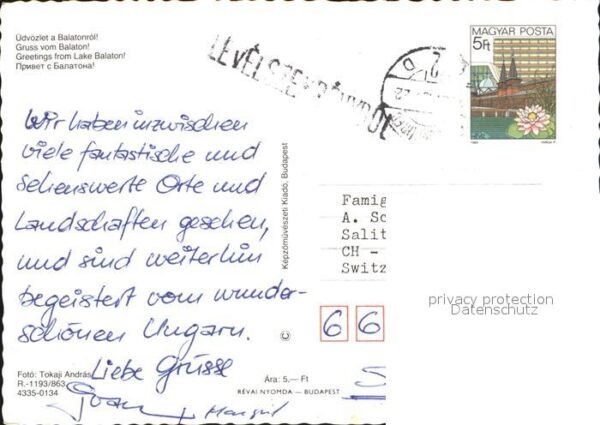 Üdvözlet a Balatonról!
Gruss vom Balaton!
Greetings from Lake Balaton!
Привет с Балатона!
LEVÉLSZE
MAGYAR POSTA
5Ft
Wir haben inzwischen
viele fantastische und
sehenswerte Orte und
Landschaften gesehen,
und sind weiterhin
begeistert vom wunder-
schönen Ungarn.
Liebe Grüsse
Képzőművészeti Kiadó, Budapest
Famig
A. Sc
Salit
CH -
Switz
privacy protection
Datenschutz
6 6
Fotó: Tokaji András
R.-1193/863
4335-0134
Ára: 5,— Ft
RÉVAI NYOMDA — BUDAPEST